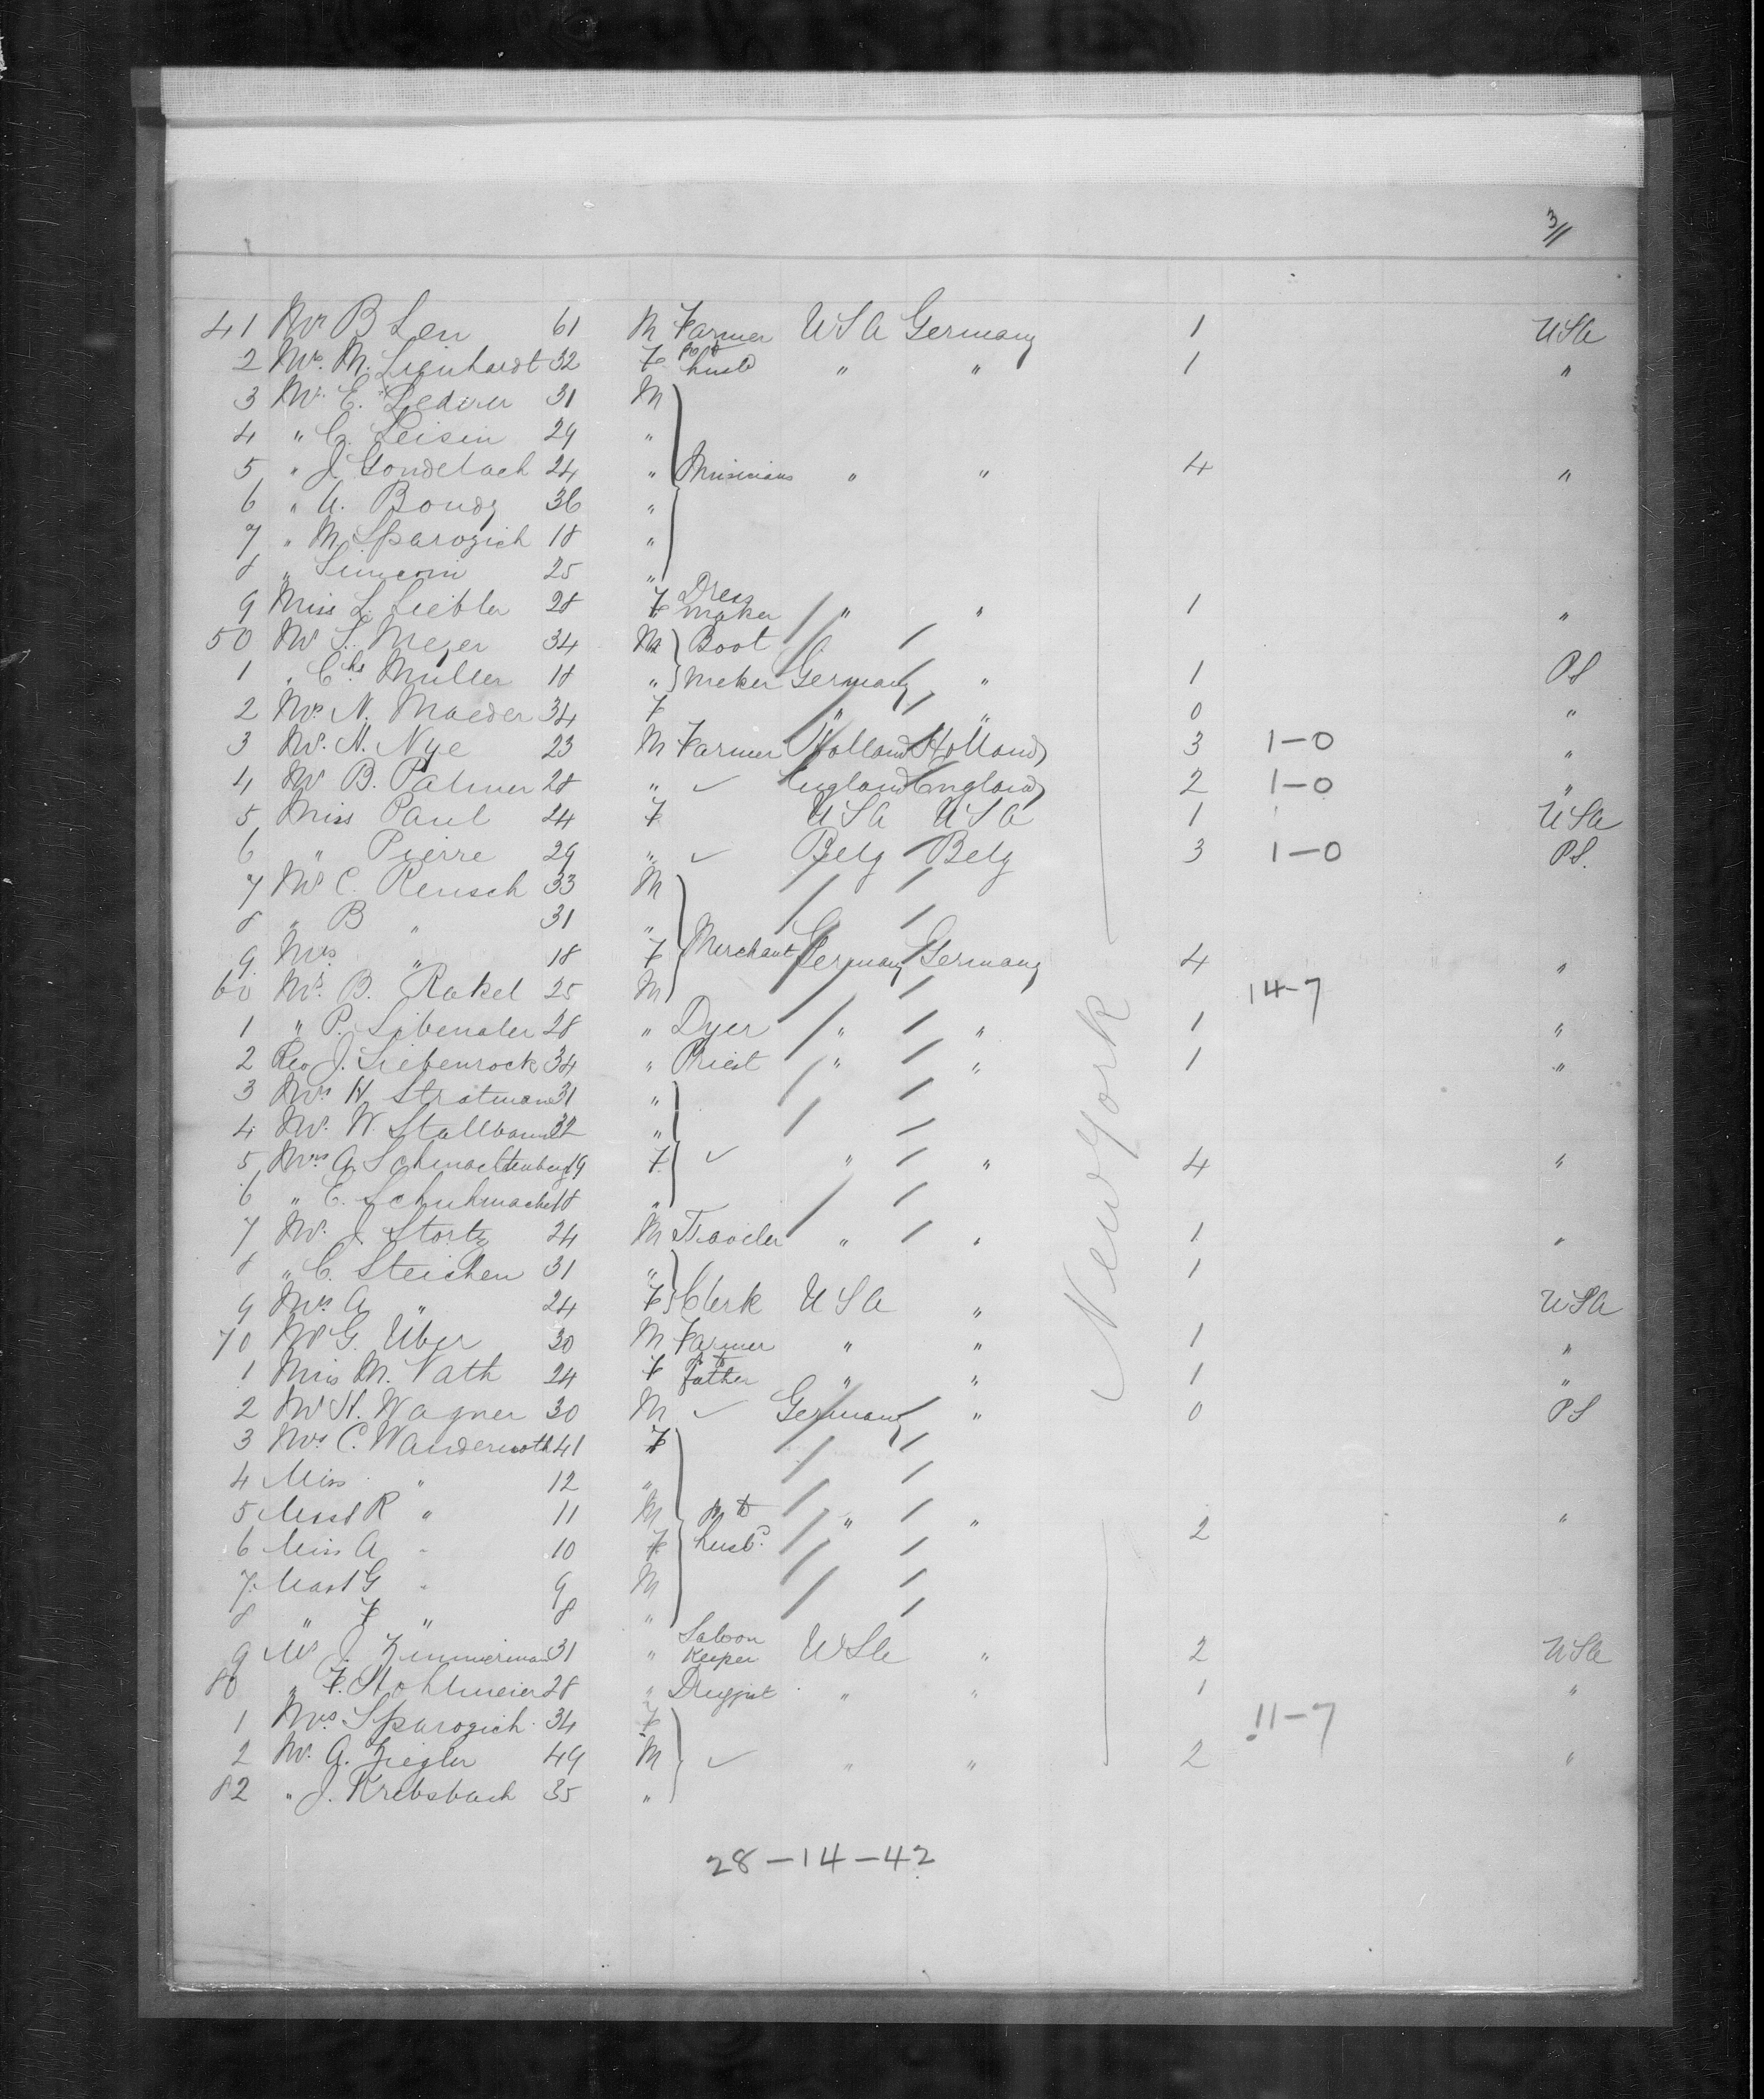 3/11
41 Mr B Len 61 M Farmer USA Germany 1 USA
2 Mrs. M. Lienhardt 32 F to husb " " 1 "
3 Mr. E. Lederer 31 M
4 " C. Leisin 29 "
5 " J. Gondelach 24 " Musicians " " 4 "
6 " A. Bondy 36 "
7 " M. Sparozich 18 "
8 " 25 "
9 Miss L. Liebler 28 F Dress maker " " 1 "
50 Mr S. Meyer 34 M Boot
1 " Chs Müller 18 " meker Germany " 1 PS
2 Mrs N. Maeder 34 F " " 0 "
3 Mr. H. Nye 23 M Farmer Holland Holland 3 1-0 "
4 Mr B. Palmer 28 " ✓ England England 2 1-0 "
5 Miss Paul 24 F USA USA 1 USA
6 " Pierre 29 " ✓ Belg Belg 3 1-0 PS.
7 Mr C. Rensch 33 M
8 " B " 31 "
9 Mrs " 18 F Merchant Germany Germany 4 "
60 Mr. B. Rakel 25 M 14-7
1 " P. Libenaler 28 " Dyer " " 1 "
2 Rev J. Siebenrock 34 " Priest " " 1 "
3 Mr H. Stratmann 31 "
4 Mr. W. 32 "
5 Mrs A. Schmachtenberg 19 F ✓ " " 4 "
6 " E. Schuhmacher 18 "
7 Mr. J. Stortz 24 M Traveler " " 1 "
8 " C. Steichen 31 " 1
9 Mrs A " 24 F Clerk USA " USA
70 Mr G. Uber 30 M Farmer " " 1 "
1 Miss M. Vath 24 F to father " " 1 "
2 Mr H. Wagner 30 M ✓ Germany " 0 PS
3 Mrs C. Wandernoth 41 F
4 Miss " 12 "
5 Mast R " 11 M to " " "
6 Miss A " 10 F husb. 2
7 Mast G " 9 M
8 " F " 8 "
9 Mr J. Zimmerman 31 " Saloon Keeper USA " 2 USA
80 " F. Stohlmeier 28 " Drugist " " 1 "
1 Mrs. Sparozich 34 F 11-7
2 Mr. A. Ziegler 49 M ✓ " " 2 "
82 " J. Krebsbach 35 "
New York
28-14-42